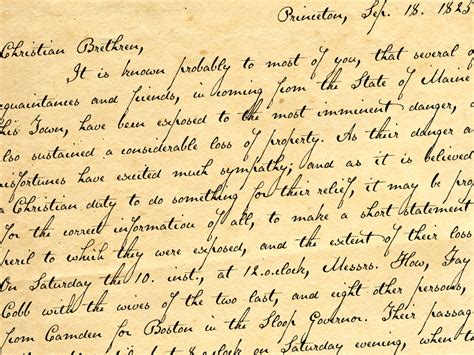 Princeton, Sep. 18. 1825
Christian Brethren,
It is known probably to most of you, that several of
quaintances and friends, in coming from the State of Maine
his Town, have been exposed to the most imminent danger,
lso sustained a considerable loss of property. As their danger a
isfortunes have excited much sympathy; and as it is believed
a Christian duty to do something for their relief, it may be prop
for the correct information of all, to make a short statement
peril to which they were exposed, and the extent of their loss
On Saturday the 10. inst, at 12.o.clock, Messrs. How, Fay
Cobb with the wives of the two last, and eight other persons,
from Camden for Boston in the Sloop Governor. Their passag
o'clock on Saturday evening, when t